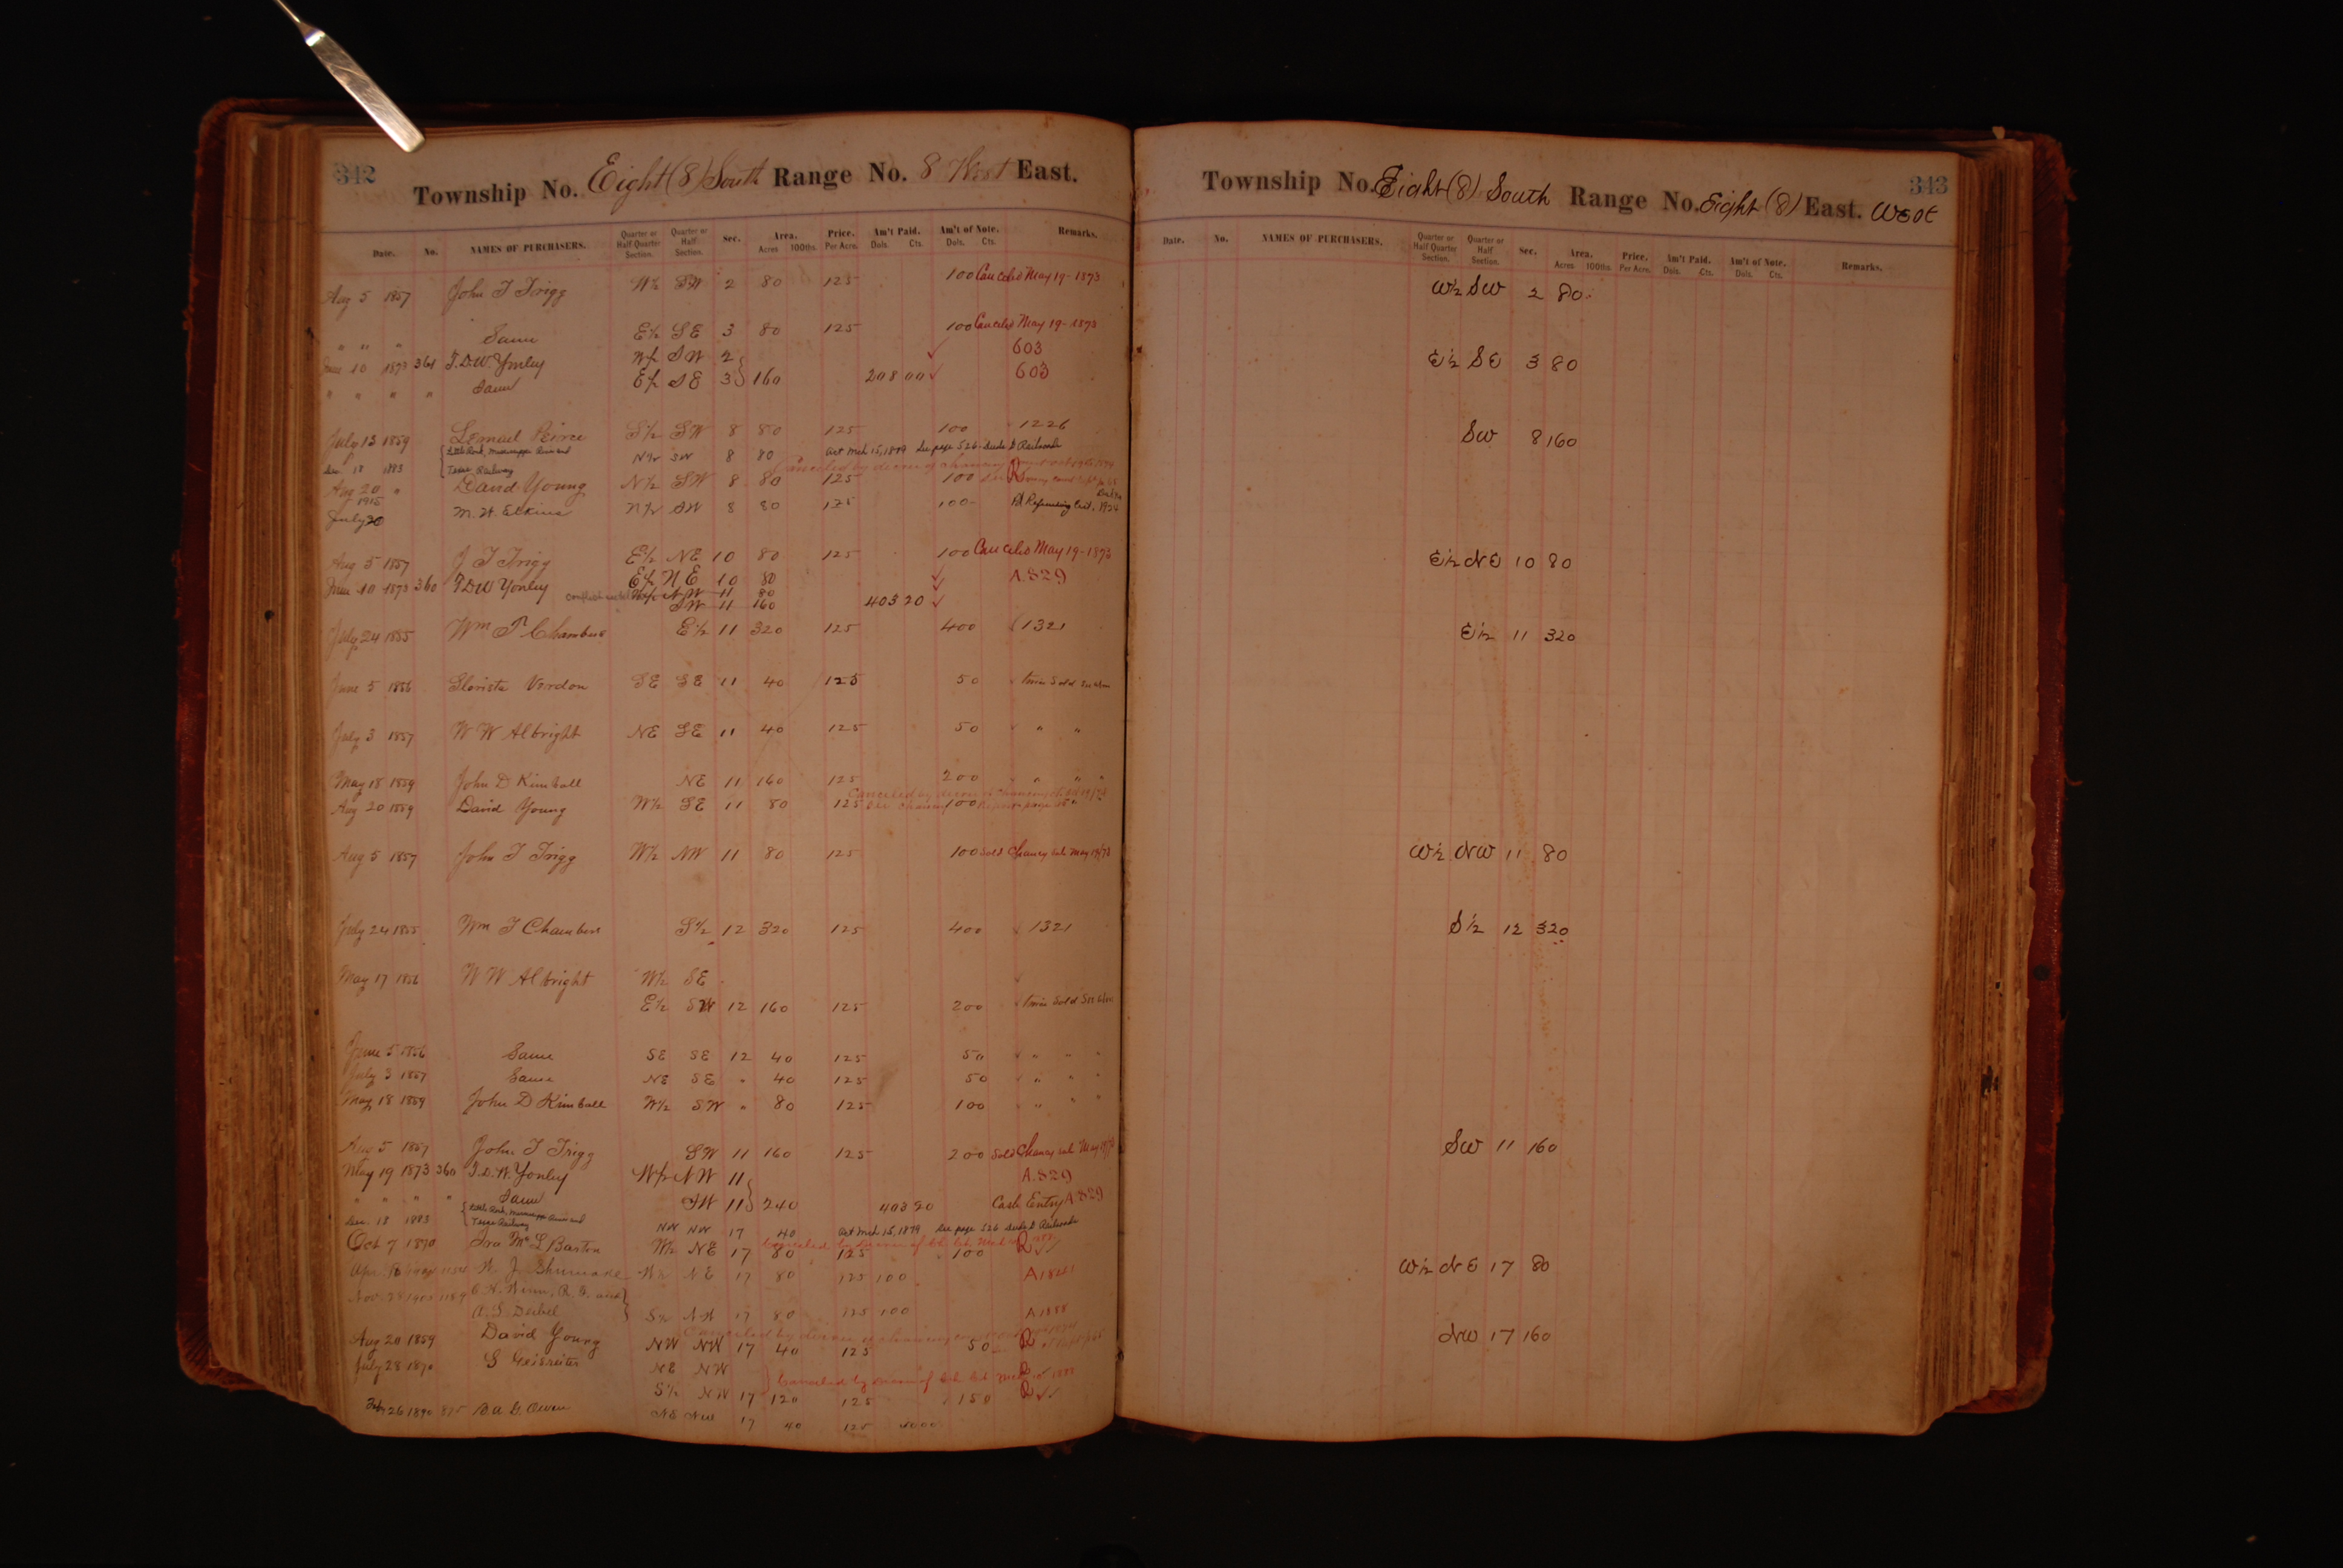 342
Township No. Eight (8) South Range No. 8 West East.
Date. No. NAMES OF PURCHASERS. Quarter or Half Quarter Section. Quarter or Half Section. Sec. Area. Acres 100ths. Price. Per Acre. Am't Paid. Dols. Cts. Am't of Note. Dols. Cts. Remarks.
Aug 5 1857 John T Trigg W½ SW 2 80 125 100 Canceled May 19-1873
" " " Same E½ SE 3 80 125 100 Canceled May 19-1873
June 10 1873 361 T.D.W. Yonley W½ SW 2 603
" " " " Same E½ SE 3 160 208 00 603
July 13 1859 Lemuel Peirce S½ SW 8 80 125 100 1226
Dec. 18 1883 Little Rock, Mississippi River and Texas Railway N½ SW 8 80 Act Mch 15, 1879 See page 526 Deeds to Railroads
Canceled by decree of chancery
Aug 20 " David Young N½ SW 8 80 125 100
1915 July 20 M. H. Elkins N½ SW 8 80 125 100
Aug 5 1857 J T Trigg E½ NE 10 80 125 100 Canceled May 19-1873
June 10 1873 360 T D W Yonley E½ NE 10 80 A.829
W½ NW 11 80
SW 11 160 403 20
July 24 1855 Wm T Chambers E½ 11 320 125 400 1321
June 5 1856 Verdon SE SE 11 40 125 50 Sold
July 3 1857 W W Albright NE SE 11 40 125 50 " "
May 18 1859 John D Kimball NE 11 160 125 200 " " "
Canceled by decree of Chancery
Aug 20 1859 David Young W½ SE 11 80 125 100
Aug 5 1857 John T Trigg W½ NW 11 80 125 100 Sold Chancy sale May 19/73
July 24 1855 Wm T Chambers S½ 12 320 125 400 1321
May 17 1856 W W Albright W½ SE
E½ SW 12 160 125 200 Sold
June 5 1856 Same SE SE 12 40 125 50 " " "
July 3 1857 Same NE SE " 40 125 50 " " "
May 18 1859 John D Kimball W½ SW " 80 125 100 " " "
Aug 5 1857 John T Trigg SW 11 160 125 200 Sold Chancy sale May 19/73
May 19 1873 360 T.D.W. Yonley W½ NW 11 A.829
" " " " Same SW 11 240 403 20 Cash Entry A 829
Dec. 18 1883 Little Rock, Mississippi River and Texas Railway NW NW 17 40 Act Mch 15, 1879 See page 526 Deeds to Railroads
Oct 7 1870 Ira Mc L Barton W½ NE 17 80 125 100 R
W. J. W½ NE 17 80 125 100
Nov 28 1903 1189
S½ NW 17 80 125 100 A 1888
Aug 20 1859 David Young NW NW 17 40 125 50 R
July 28 1870 S Geisreiter NE NW
S½ NW 17 120 125 150 R
26 1890 875 B.A. D. Owen NE NW 17 40 125 5000
343
Township No. Eight (8) South Range No. Eight (8) East. West
Date. No. NAMES OF PURCHASERS. Quarter or Half Quarter Section. Quarter or Half Section. Sec. Area. Acres 100ths. Price. Per Acre. Am't Paid. Dols. Cts. Am't of Note. Dols. Cts. Remarks.
W½ SW 2 80
E½ SE 3 80
SW 8 160
E½ NE 10 80
E½ 11 320
W½ NW 11 80
S½ 12 320
SW 11 160
W½ NE 17 80
NW 17 160